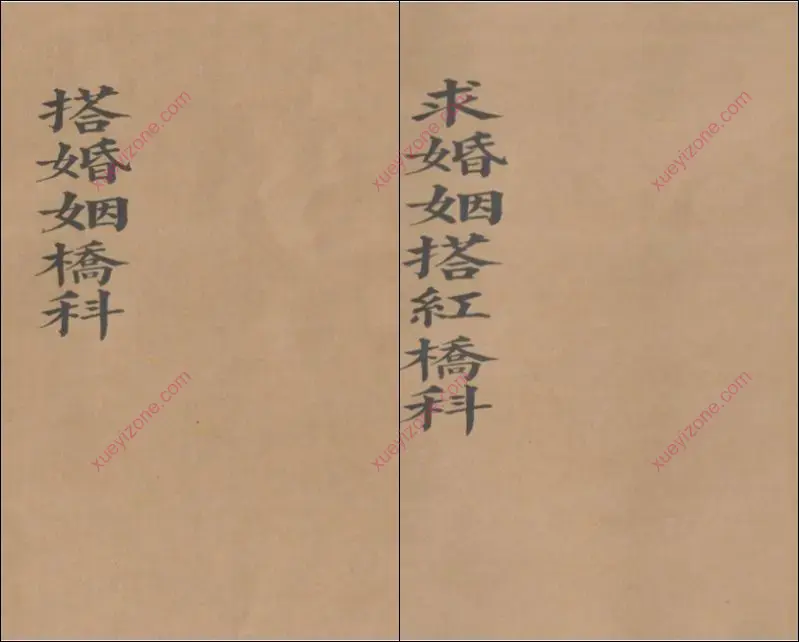 搭婚姻橋科
求婚姻搭紅橋科
xueyizone.com
xueyizone.com
xueyizone.com
xueyizone.com
xueyizone.com
xueyizone.com